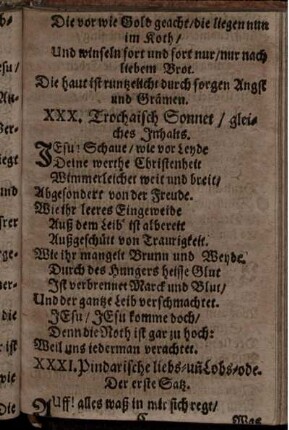 Die vor wie Gold geacht/die liegen nun
im Koth/
Und winseln fort und fort nur/nur nach
liebem Brot.
Die haut ist runtzelicht durch sorgen Angst
und Grämen.
XXX. Trochaisch Sonnet / glei-
ches Inhalts.
JEsu! Schaue/ wie vor Leyde
Deine werthe Christenheit
Wimmerleichet weit und breit/
Abgesondert von der Freude.
Wie ihr leeres Eingeweide
Auß dem Leib' ist albereit
Außgeschütt von Traurigkeit.
Wie ihr mangelt Brunn und Weyde.
Durch des Hungers heisse Glut
Ist verbrennet Marck und Blut/
Und der gantze Leib verschmachtet.
JEsu/ JEsu komme doch/
Denn die Noth ist gar zu hoch:
Weil uns iederman verachtet.
XXXI. Pindarische liebs/uñ Lobs/ode.
Der erste Satz.
AUff! alles waß in mir sich regt/
C Was